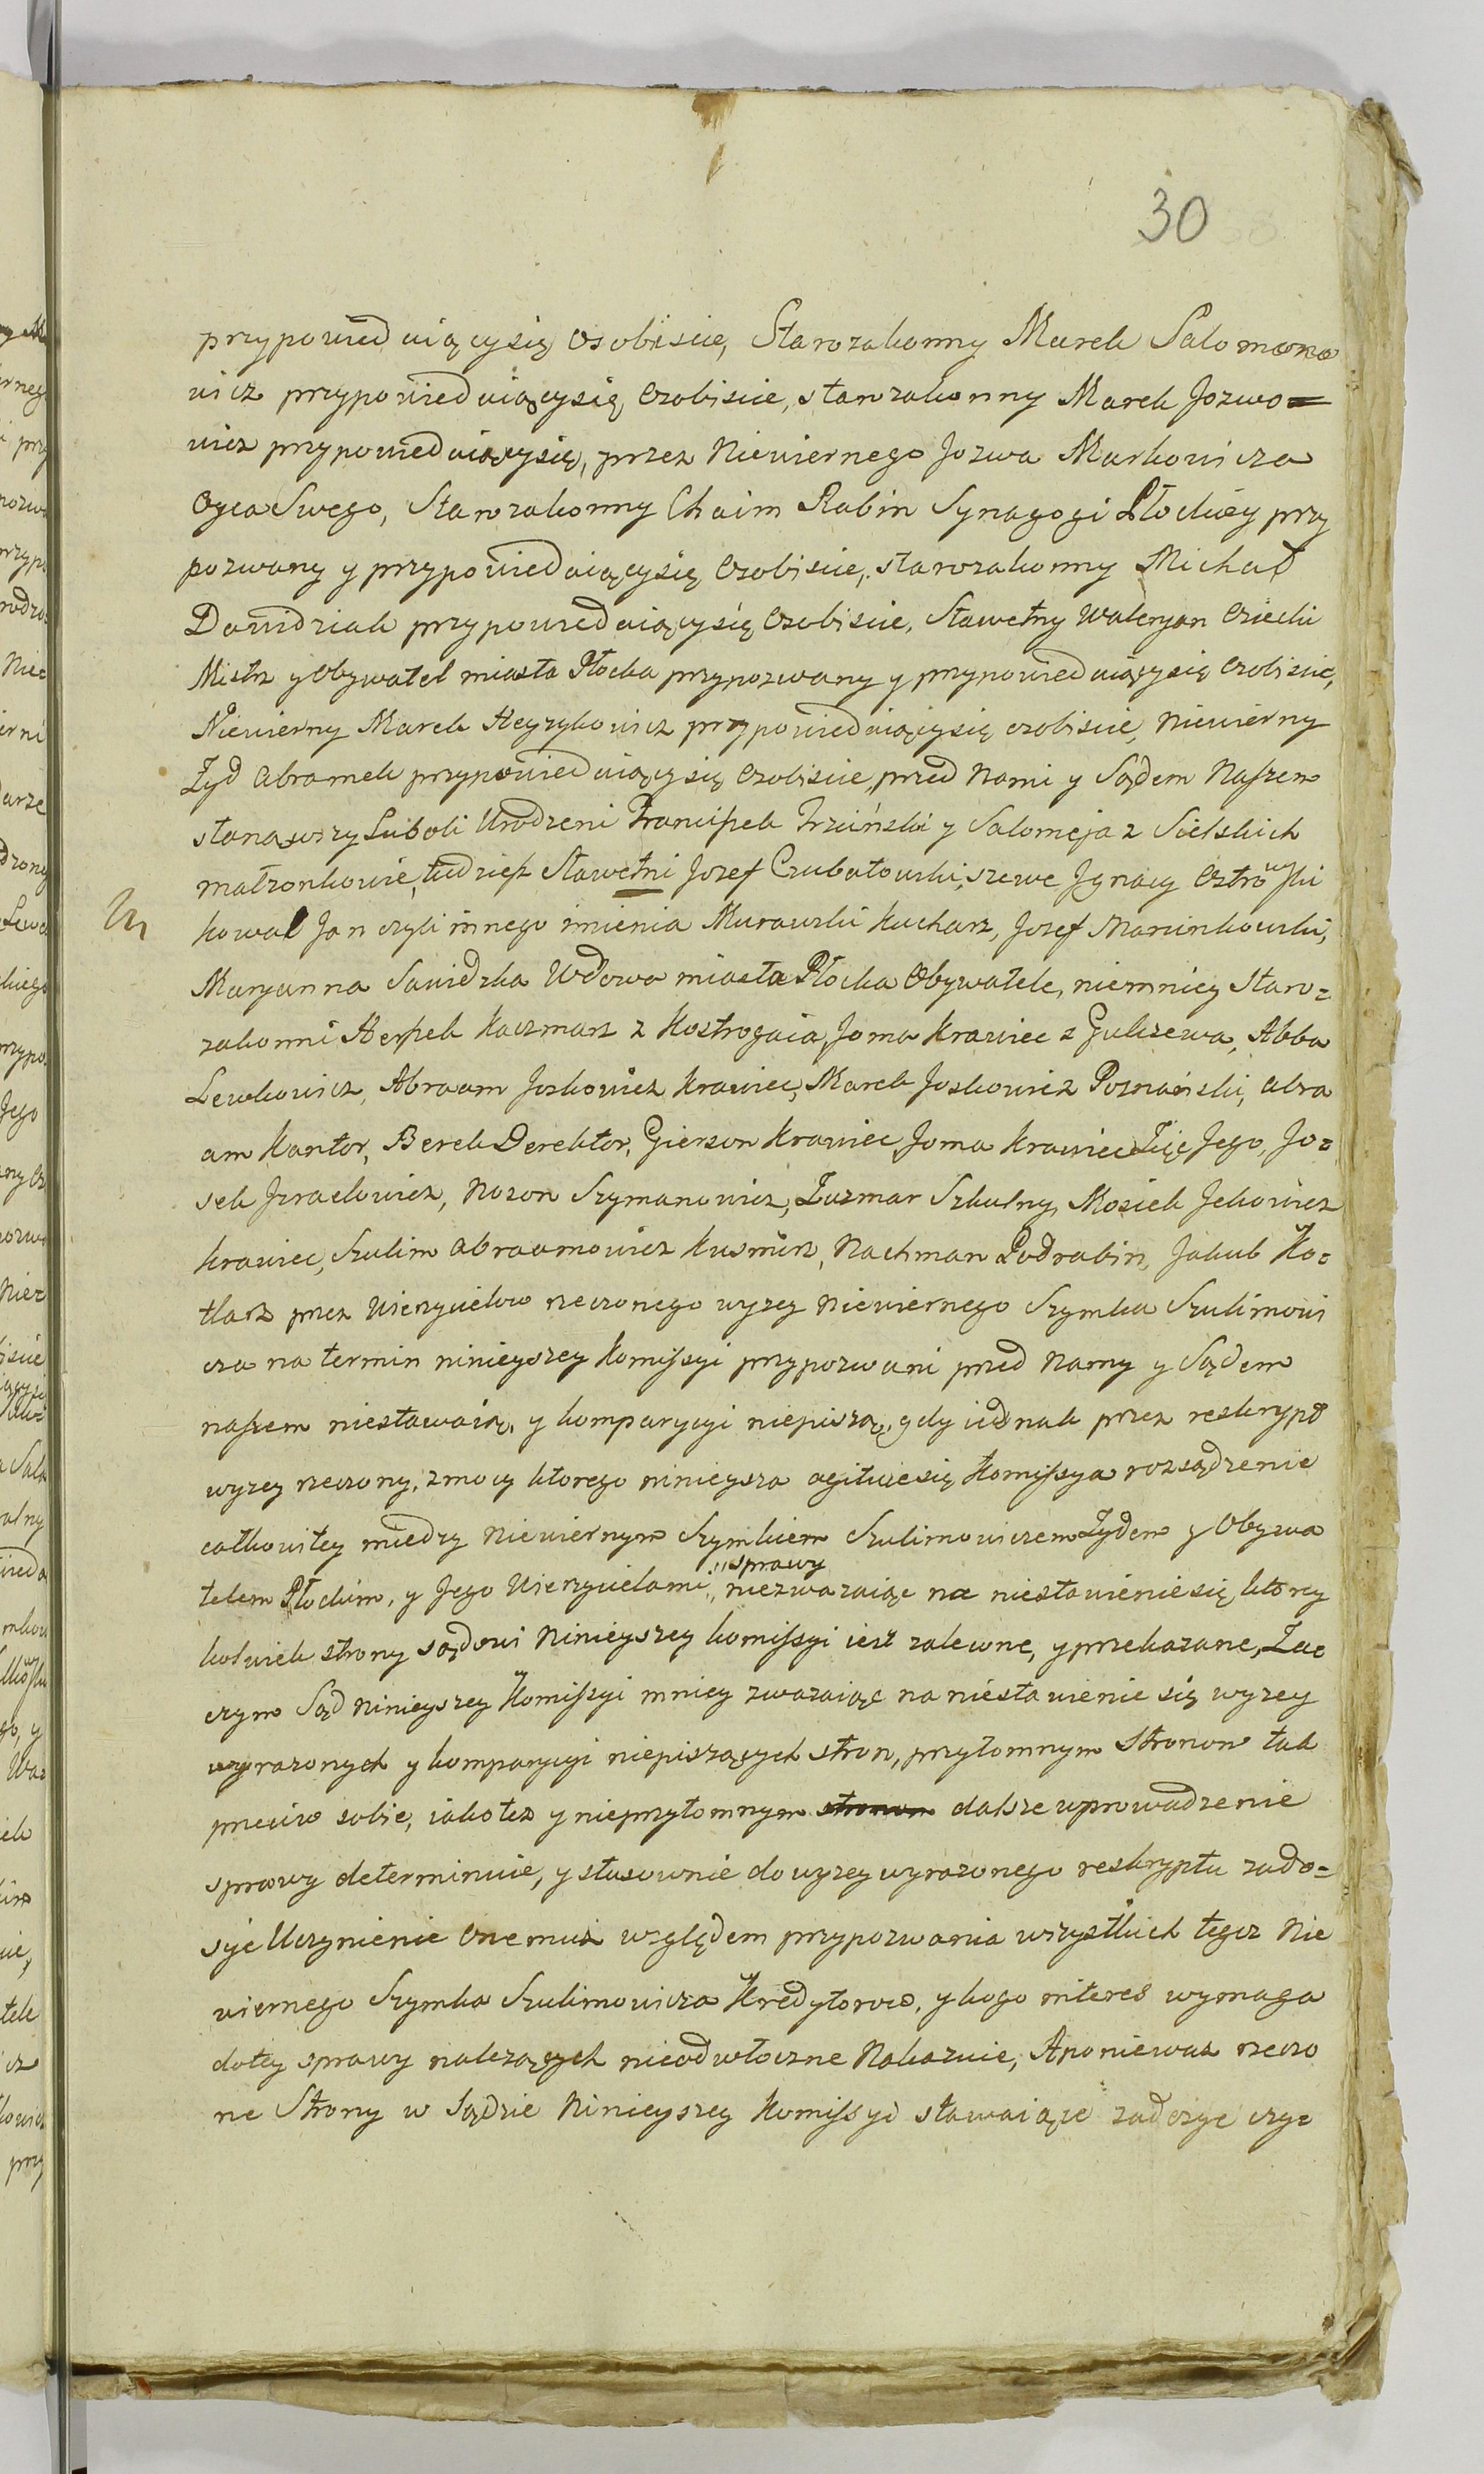 30
przypowiedaiącysię osobiscie, Starozakonny Marek Salomono
wicz przypowiedaiącysię osobiscie, starozakonny Marek Jozwo=
wicz przypowiedaiącysię, przez Niewiernego Jozwa Markowicza
Oyca Swego, Starozakonny Chaim Rabin Synagogi Płockiey przy
pozwany y przypowiedaiącysię Osobiscie, starozakonny Michał
Dawidziak przypowiedaiącysię Osobiscie, Sławetny Waleryan
Mistrz y Obywatel miasta Płocka przypozwany y przypowiedaiącysię Osobiscie,
Niewierny Marek Heyzykowicz przypowiedaiącysię osobiscie, niewierny
Żyd Abramek przypowiedaiącysię Osobiscie, przed Nami y Sądem Naszem
stanąwszy Luboli Urodzeni Franciszek Trzciński y Salomeja z Sielskich
małżonkowie, tudzież Sławetni Jozef Czubatowski, szewc Jgnacy Ostrowski
kowal Jan czyli innego imienia Murawski kucharz, Jozef Marcinkowski,
Maryanna Sawidzka Wdowa miasta Płocka Obywatele, niemniey Staro=
zakonni Herszek Kaczmarz z Kostrogaia, Joma Krawiec z Gulczewa, Abba
Lewkowicz, Abraam Joskowicz Krawiec, Marek Joskowicz Poznański, Abra
am Kantor, Berek Derektor, Gierszon Krawiec, Joma Krawiec Zięć Jego, Jo=
sek Jzraelowicz, Nozon Szymanowicz, Zuzmar Szkulny, Mosiek Jckowicz
Krawiec, Szulim Abraamowicz Kusmirz, Nachman Podrabin, Jakub Ko=
tlarz przez Wierzycielow rzeczonego wyzey niewiernego Szymka Szulimowi
cza na termin ninieyszey Komissyi przypozwani przed Namy y Sądem
naszem niestawaią, y komparycyi niepiszą, gdy iednak przez reskrypt
wyzey rzeczony, z mocy ktorego ninieysza agituiesię Komissya rozsądzenie
całkowitey miedzy niewiernym Szymkiem Szulimowiczem Żydem y Obywa
telem Płockim, y Jego Wierzycielami, "sprawy niezwazaiąc na niestawieniesię ktorey
kolwiek strony sądowi Ninieyszey komissyi iest zalecone, y przekazane, Za=
czym Sąd Ninieyszey Komissyi mniey zwazaiąc na niestawienie się wyzey
wyrazonych y komparycyi niepiszących stron, przytomnym Stronom tak
przeciw sobie, iakotez y nieprzytomnym stronom dalsze wprowadzenie
sprawy determinuie, y stosownie do wyzey wyrazonego reskryptu zado=
syć Uczynienie Onemuz względem przypozwania wszystkich tegoz Nie
wiernego Szymka Szulimowicza Kredytorow, y kogo interes wymaga
do tey sprawy nalezących nieodwłoczne Nakazuie, Aponiewaz rzeczo
ne Strony w Sądzie Ninieyszey Komissyi stawaiące zadosyć czy=